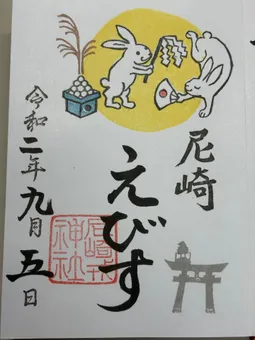 尼崎
えびす
尼崎戎
神社
令和二年九月五日